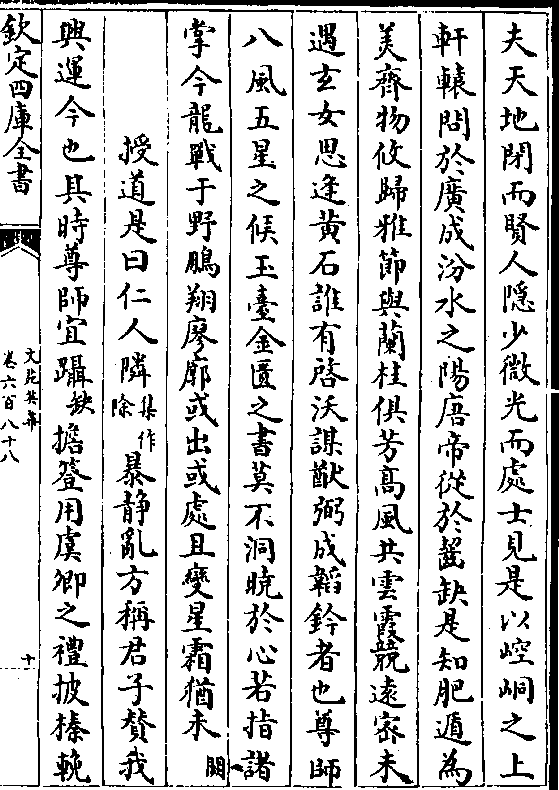 夫天地閉而賢人隱少微光而處士見是以崆峒之上
軒轅問於廣成汾水之陽唐帝從於齧缺是知肥遁為
美齊物攸歸雅節與蘭桂俱芳高風共雲霞競遠寀未
遇玄女思逢黄石誰有啓沃謀猷弼成韜鈐者也尊師
八風五星之候玉臺金匱之書莫不洞曉於心若指諸
掌今龍戰于野鵬翔廖廓或出或處且變星霜猶未
闕一
授道是曰仁人隣集作除暴静亂方稱君子贊我
興運今也其時尊師宜躡缺擔簦用虞卿之禮披榛輓
欽定四庫全書
文苑英華
卷六百八十八
十